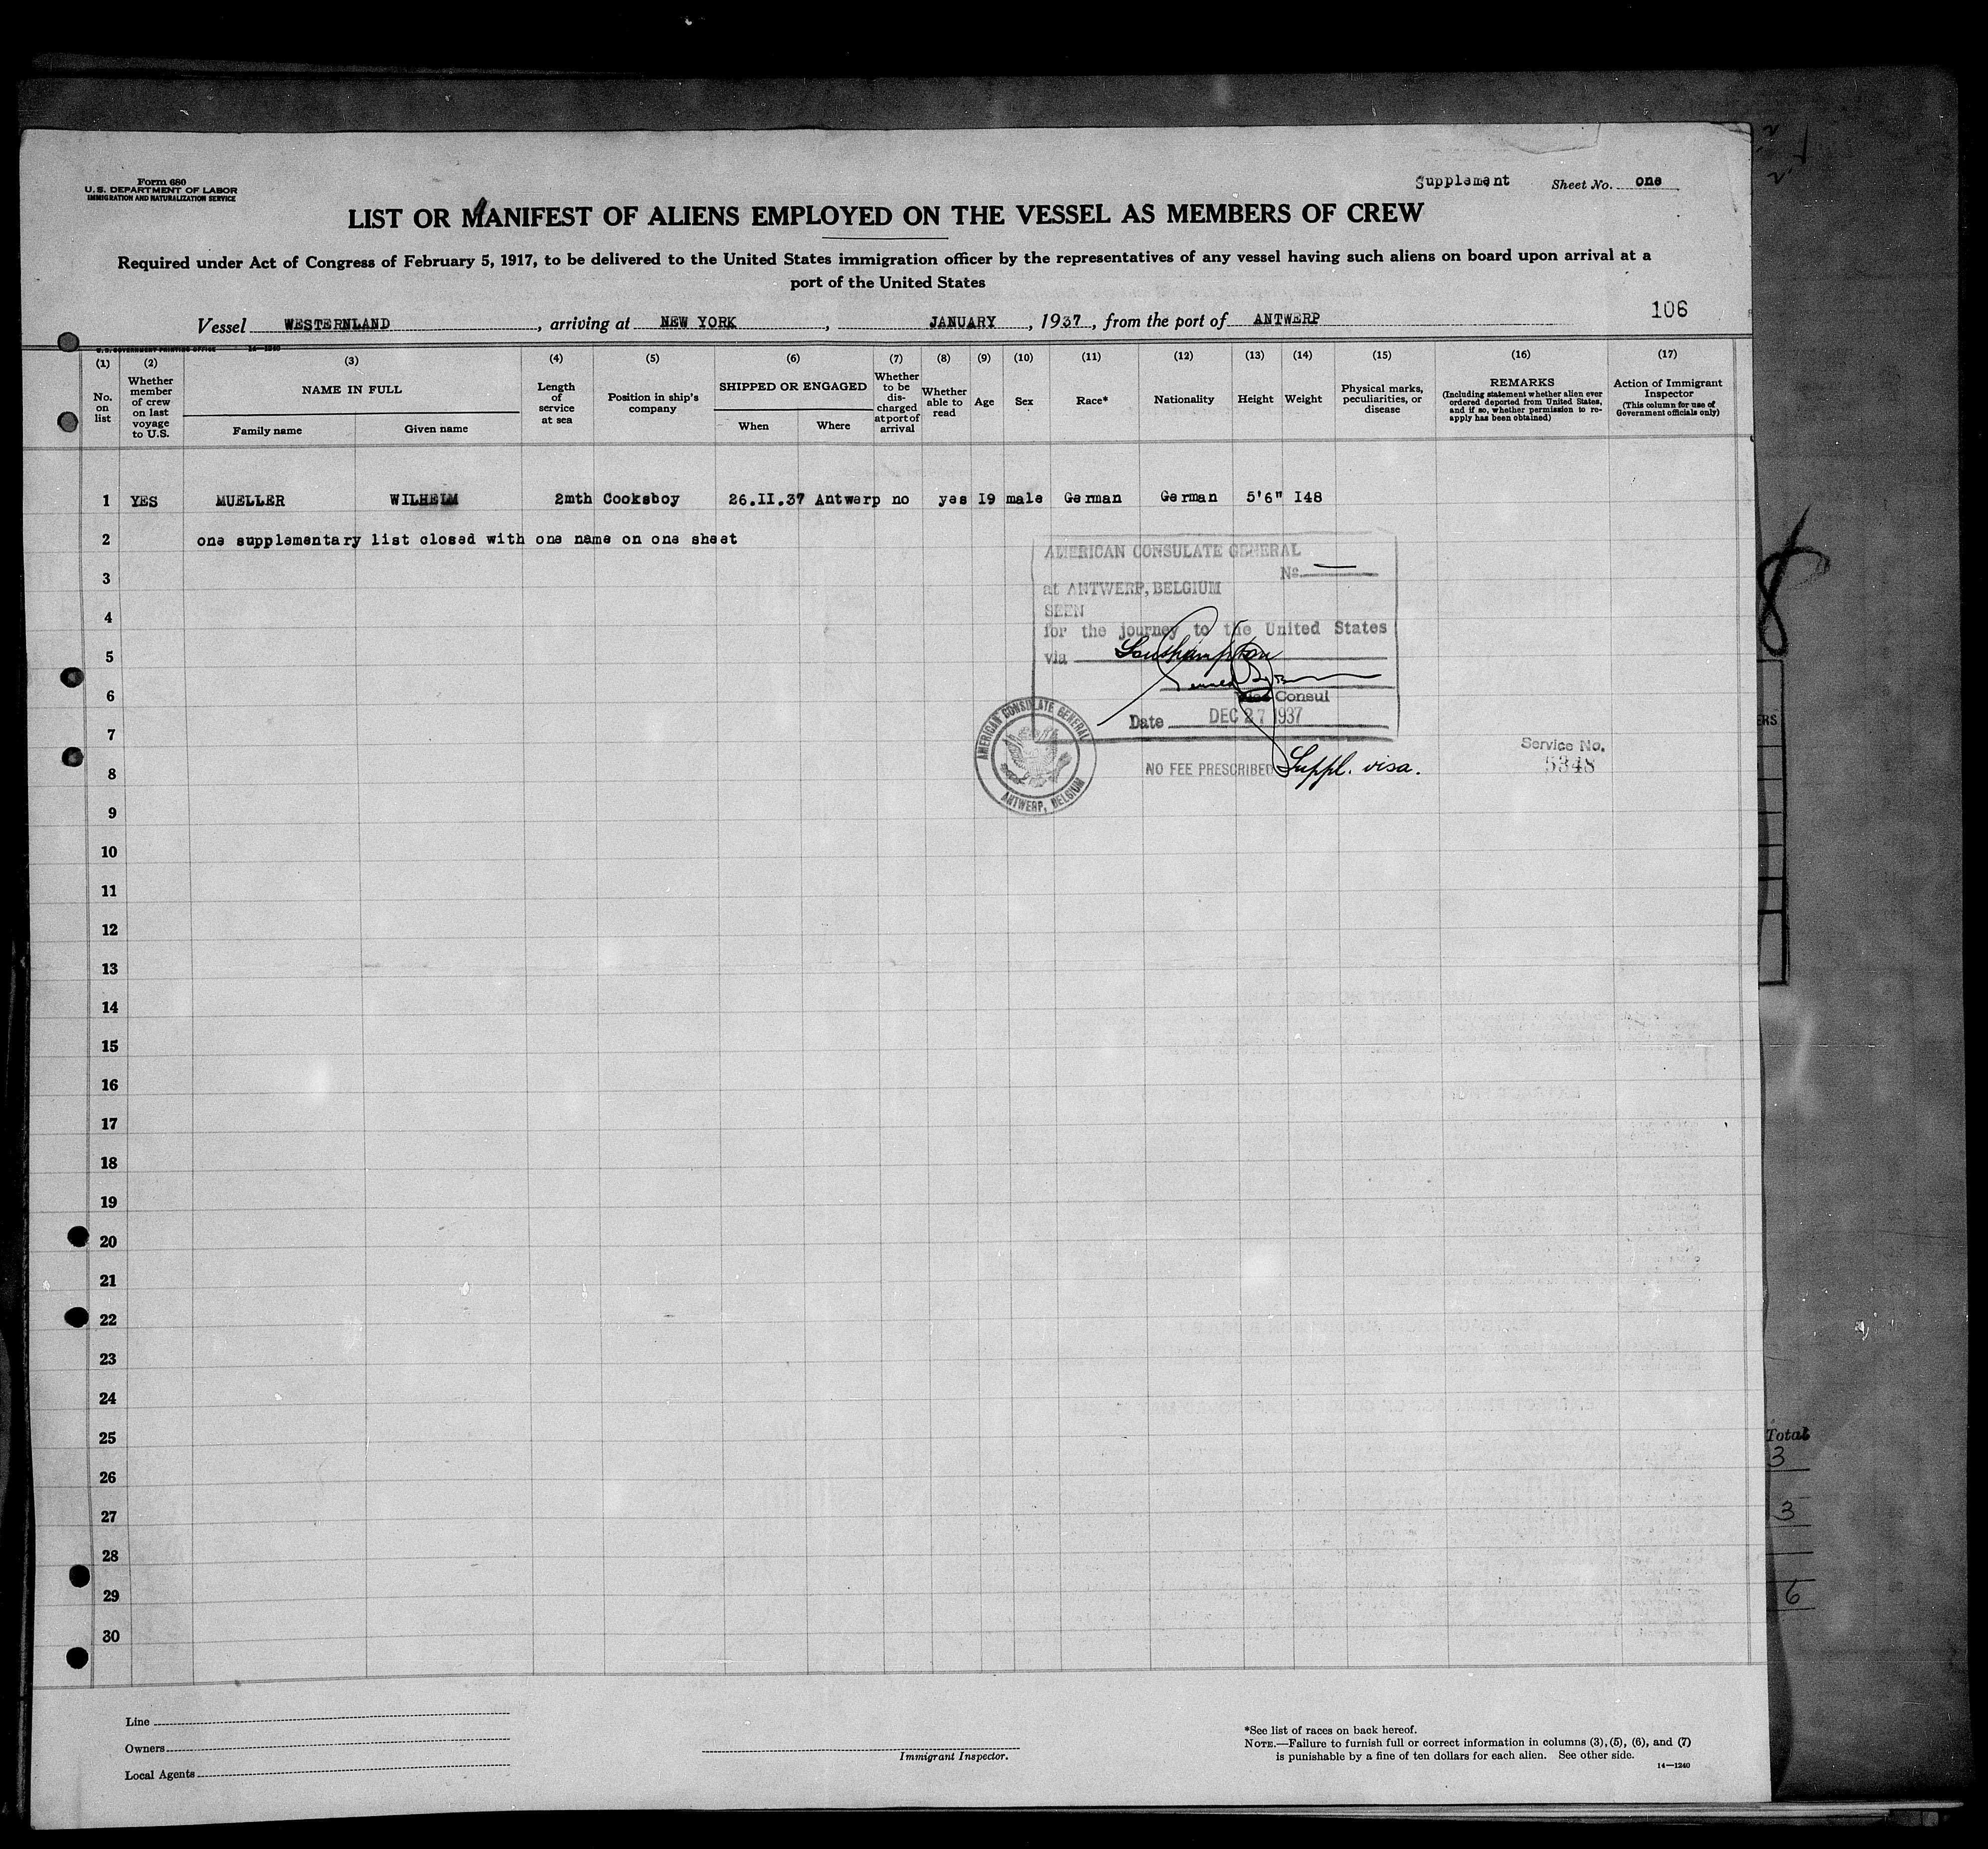 Form 680
U. S. DEPARTMENT OF LABOR
IMMIGRATION AND NATURALIZATION SERVICE
Supplement Sheet No. one
LIST OR MANIFEST OF ALIENS EMPLOYED ON THE VESSEL AS MEMBERS OF CREW
Required under Act of Congress of February 5, 1917, to be delivered to the United States immigration officer by the representatives of any vessel having such aliens on board upon arrival at a
port of the United States
106
Vessel WESTERNLAND, arriving at NEW YORK, JANUARY, 1937, from the port of ANTWERP
U. S. GOVERNMENT PRINTING OFFICE 14—1240
(1) (2) (3) (4) (5) (6) (7) (8) (9) (10) (11) (12) (13) (14) (15) (16) (17)
No. on list
Whether member of crew on last voyage to U.S.
NAME IN FULL
Family name
Given name
Length of service at sea
Position in ship's company
SHIPPED OR ENGAGED
When
Where
Whether to be discharged at port of arrival
Whether able to read
Age
Sex
Race*
Nationality
Height
Weight
Physical marks, peculiarities, or disease
REMARKS
(Including statement whether alien ever ordered deported from United States, and if so, whether permission to reapply has been obtained)
Action of Immigrant Inspector
(This column for use of Government officials only)
1 YES MUELLER WILHELM 2mth Cooksboy 26.II.37 Antwerp no yes I9 male German German 5'6" I48
2 one supplementary list closed with one name on one sheet
AMERICAN CONSULATE GENERAL
No. —
at ANTWERP, BELGIUM
SEEN
for the journey to the United States
via Southampton
Consul
Date DEC 27 1937
AMERICAN CONSULATE GENERAL
ANTWERP, BELGIUM
NO FEE PRESCRIBED Suppl. visa.
Service No.
5348
3
4
5
6
7
8
9
10
11
12
13
14
15
16
17
18
19
20
21
22
23
24
25
26
27
28
29
30
8
ERS
Total
3
3
6
Line
Owners
Local Agents
Immigrant Inspector.
*See list of races on back hereof.
NOTE.—Failure to furnish full or correct information in columns (3), (5), (6), and (7)
is punishable by a fine of ten dollars for each alien. See other side.
14—1240